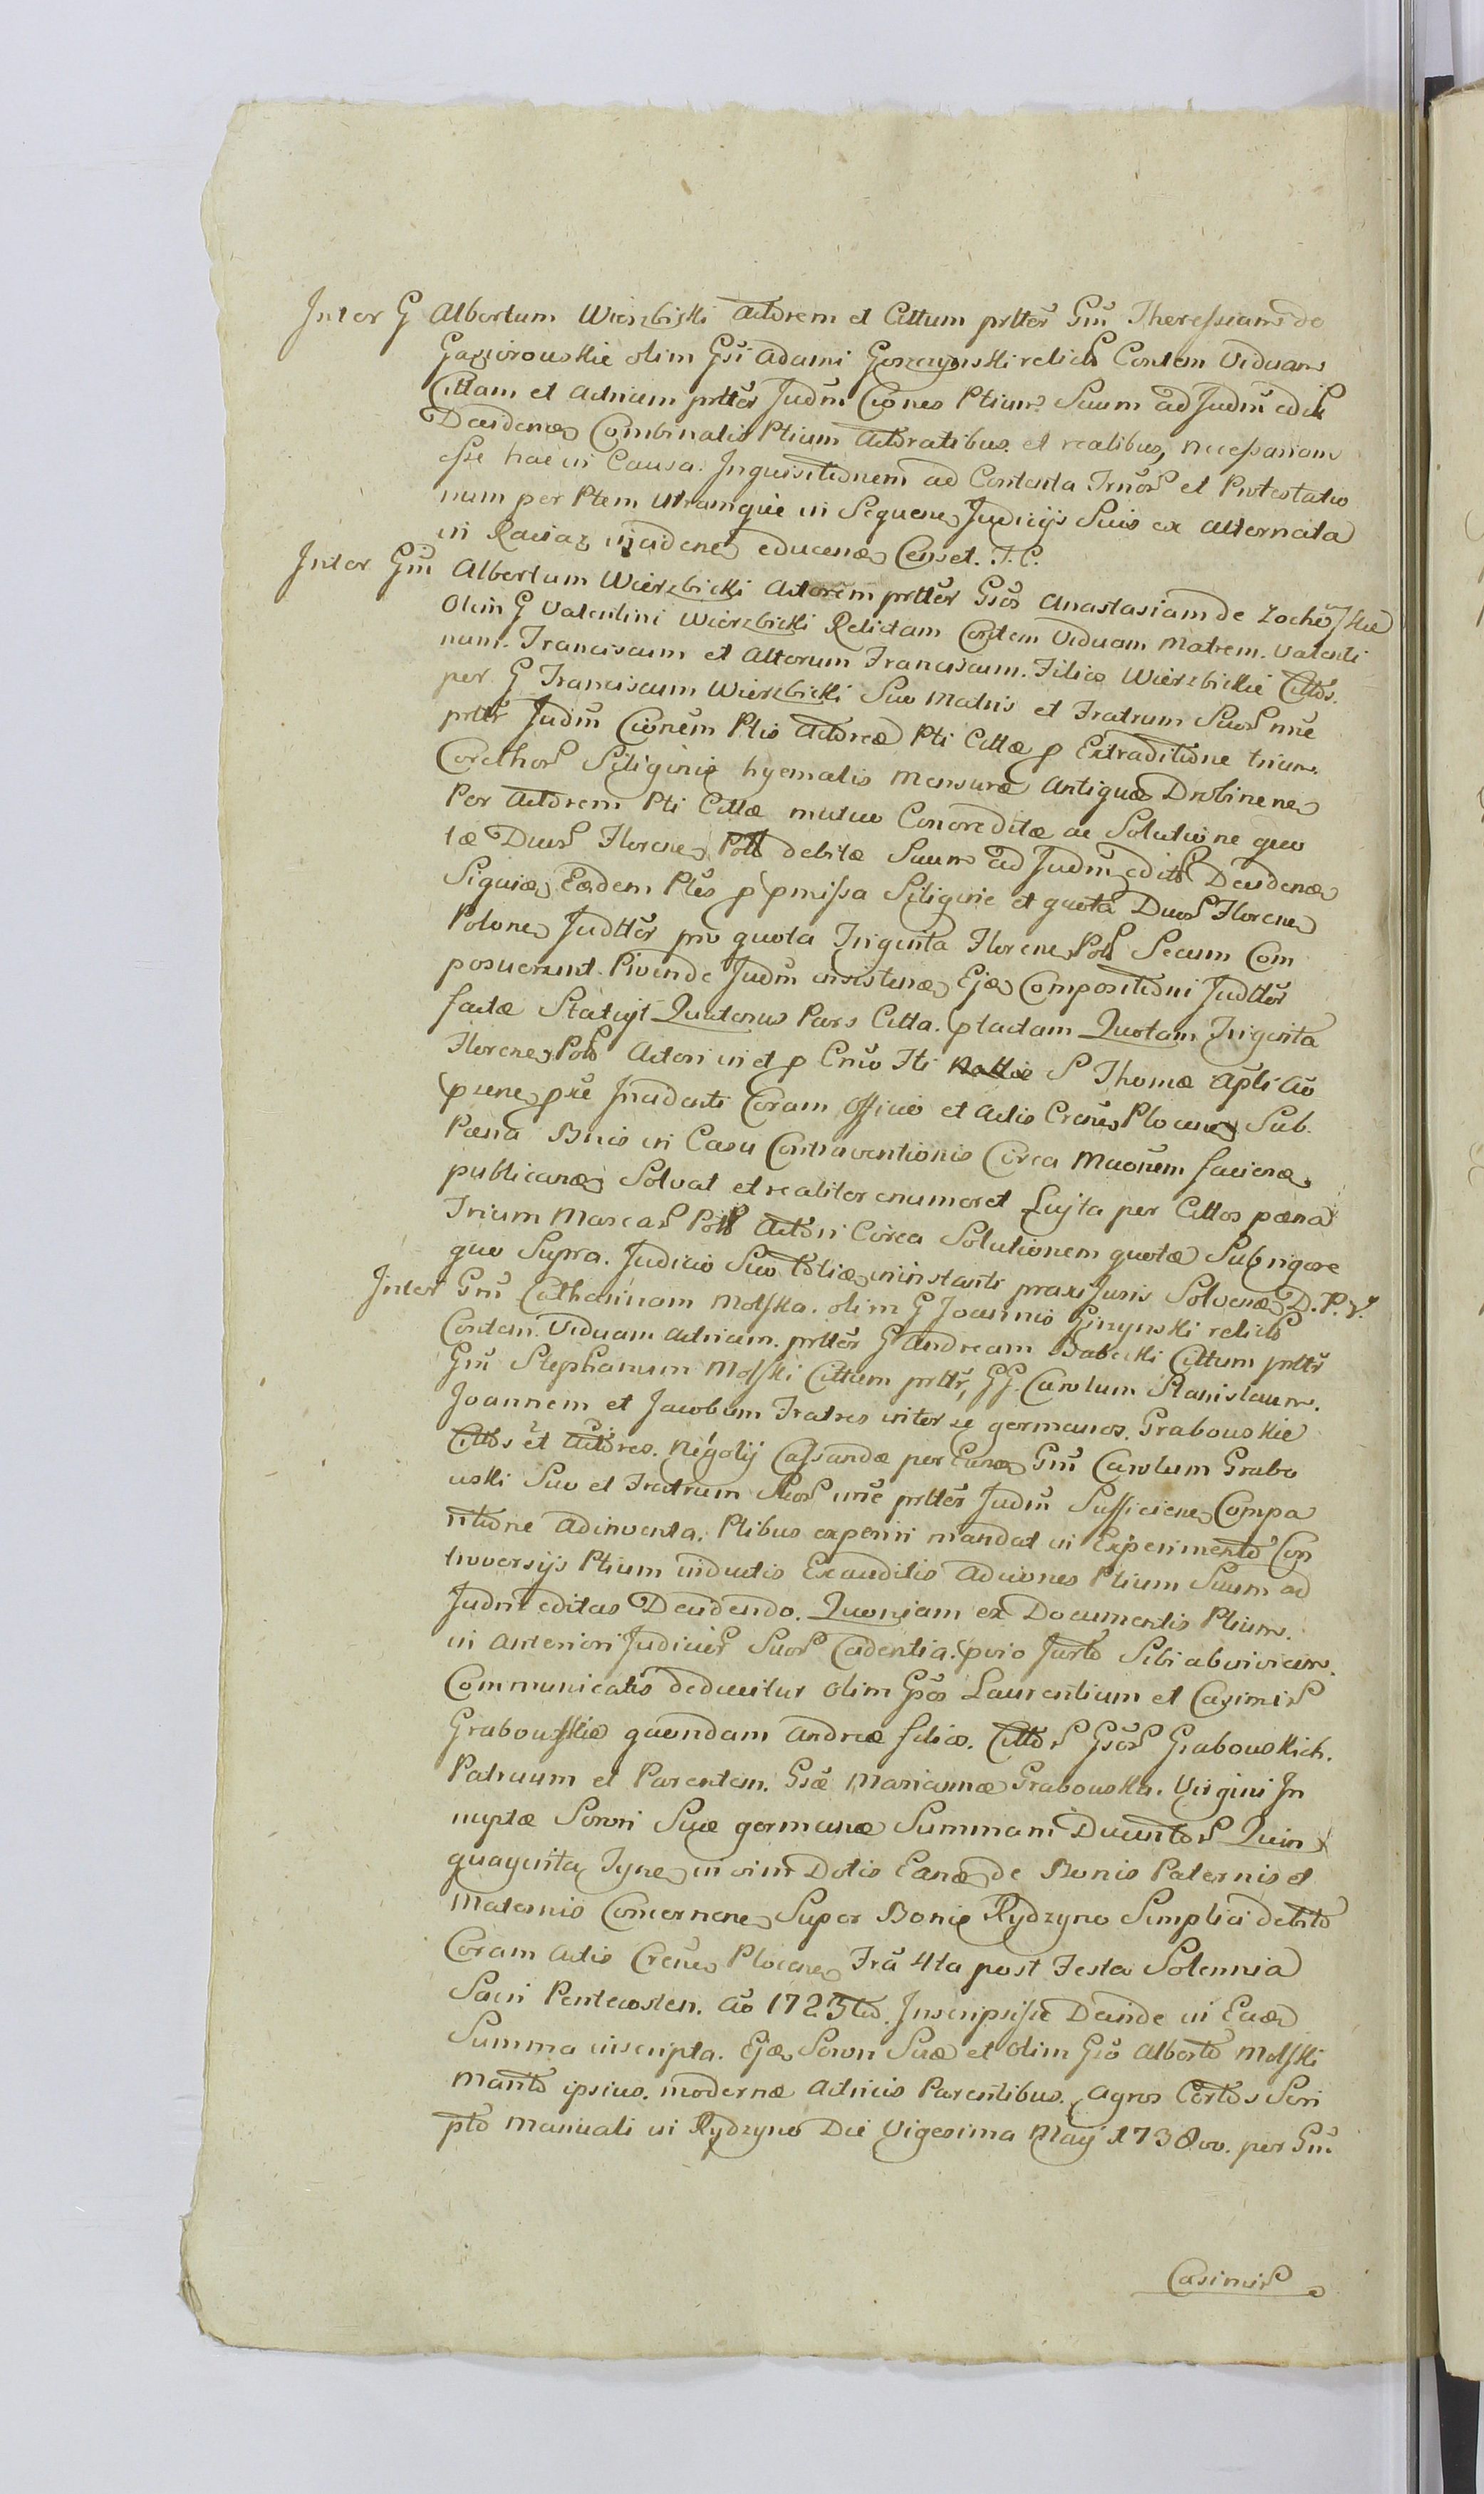 Inter G Albertum Wierzbicki Actorem et Cittum prtter Gm̃ Theressiam de
Gąssiorowskie olim Gsi Adami Gorczynski relict Contem Viduam
Cittam et Actricem prtter Judm̃ Ciones Ptium Suum ad Judm̃ edit
Decidens Combinatis Ptium Actoratibus et realibus, necessariam
esse hac in Causa Inquisitionem ad Contenta Trnõr et Protestatio
num per Ptem Utramque in Sequenᷤ Judicijs Suis ex alternata
in Raciąz incidenᷤ educenᷤ Censet. J. C.
Inter Gm̃ Albertum Wierzbicki Actorem prtter Gsõs Anastasiam de Zochowskie
Olim G Valentini Wierzbicki Relictam Contem Viduam Matrem. Valenti
num. Franciscum et Alterum Franciscum. Filios Wierzbickie Cittõs.
per G Franciscum Wierzbicki Suo Matris et Fratrum Suor nñe
prttr Judm̃ Cionem Ptis Actoreæ Pti Cittæ p Extraditione trium.
Corethor Siliginis hyemalis Mensuræ Antiquæ Drobinenᷤ
Per Actorem Pti Cittæ mutuo Concreditæ ac Solutione quo
tæ Duor Florenᷤ Poll debitæ Suum ad Judm̃ edit Decidenᷤ
Siquidᷤ Eædem Ptes p pmissa Siligine et quota Duor Florenᷤ
Polonᷤ Judtter pro quota Triginta Florenᷤ Poll Secum Com
posuerunt. Proinde Judm̃ insistenᷤ Ejᷤ Compositioni Judtter
factæ Statuit Quatenus Pars Citta. ptactam Quotam Triginta
Florenᷤ Poll Actori in et p Cmo Fti S Thomæ Apli Ao
psenᷤ pxe Incidenti Coram Officio et Actis Crenᷤ Plocenᷤ Sub.
Pæna Bnis in Casu Contraventionis Circa Mtionem faciendᷤ
publicanᷤ Solvat et realiter enumeret Luita per Cittos pæna
Trium Marcar Poll Actori Circa Solutionem quotæ Sub rigore
quo Supra. Judicio Suo tdliæ in instanti praxi Juris Solvenᷤ D. P. V.
Inter Gm̃ Catharinam Molska. olim G Joannis Ginzynski relict
Contem Viduam Actricem. prtter G Andream Babecki Cittum prttr
Gm̃ Stephanum Molski Cittum prttr, GG. Carolum Stanislaum.
Joannem et Jacobum Fratres inter se germanos. Grabowskie
Cittos et Actores. Négotij Cassandæ per Eunᷤ Gm̃ Carolum Grabo
wski Suo et Fratrum Suor nñe prtter Judm̃ Sufficienᷤ Compa
ritione adinventa. Ptibus experiri mandat in Experimento Con
troversijs Ptium inductis Exauditis Aduiones Ptium Suum ad
Judm̃ editas Decidendo. Quoniam ex Documentis Ptium.
in anteriori Judicier Suor Cadentia. pvio Jurto Sibi ab invicem.
Communicatis deducitur olim Gsõs Laurentium et Casimir
Grabowskie quondam Andreæ filios. Cittor Gsõr Grabowskich.
Patruum et Parentem. Gsæ Mariannæ Grabowska. Virgini In
nuptæ Sorori Suæ germanæ Summam Ducentor Quin
quaginta Tynᷤ in vim Dotis Eanᷤ de Bonis Paternis et
Maternis Concernenᷤ Super Bonis Rydzyno Simplici debito
Coram Actis Crenᷤ Plocenᷤ Fra 4ta post Festa Solennia
Sacri Pentecosten. Ao 1723tio. Inscripsisse Deinde in Eadᷤ
Summa inscripta. Ejᷤ Sorori Suæ et olim Gso Alberto Molski
Marito ipsius. modernæ Actricis Parentibus. Agros Certos Scri
pto Manuali in Rydzyno Die Vigesima Maij 1738vo. per Gm̃
Casimir